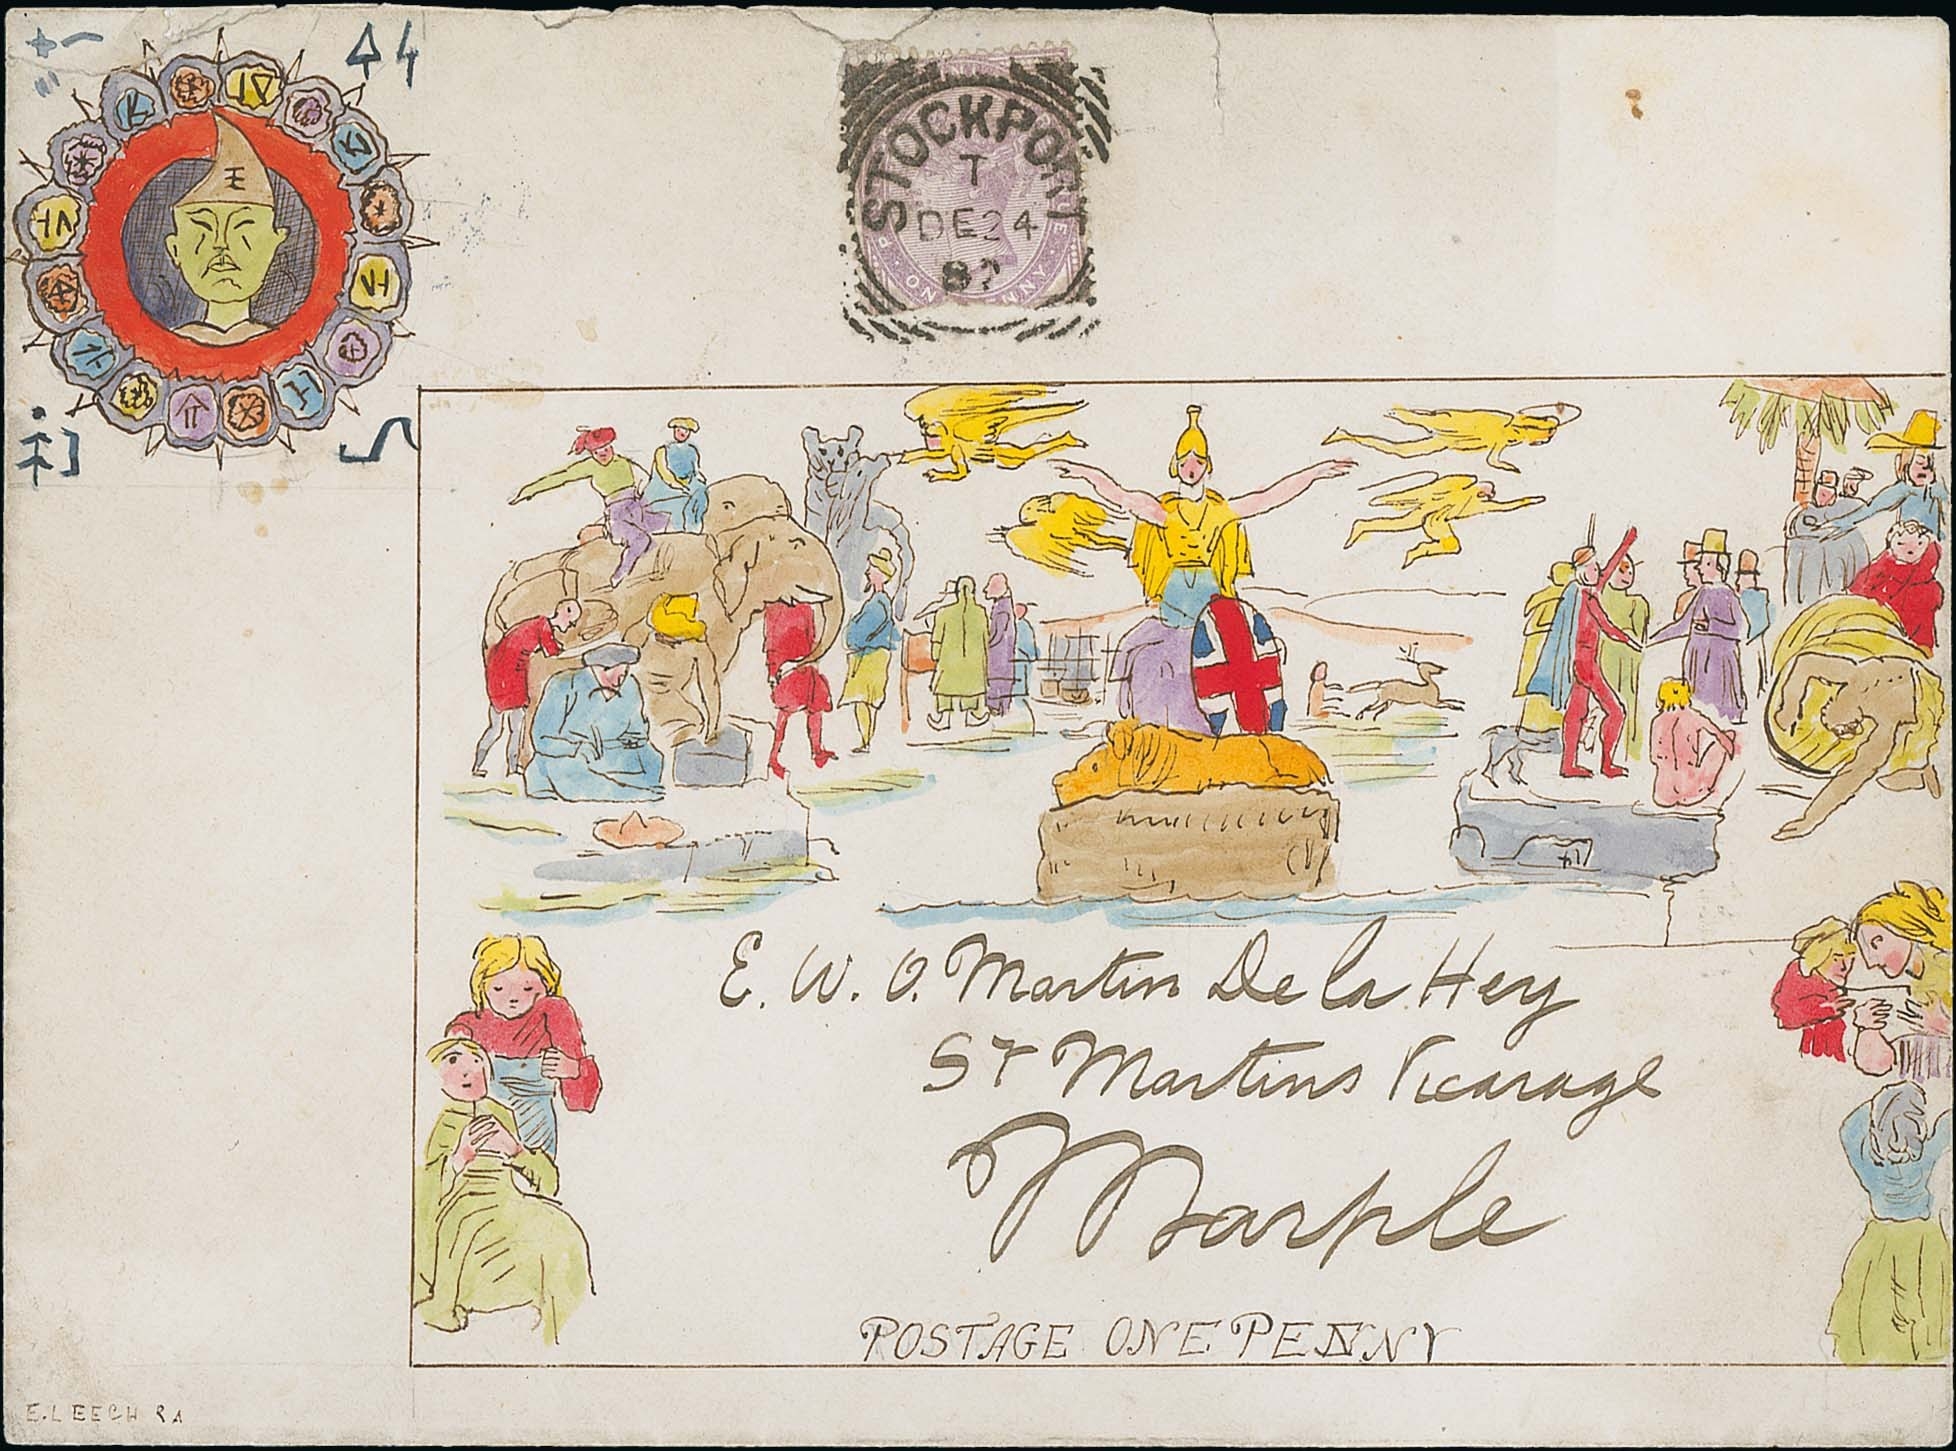 STOCKPORT
T
DE 24
87
E. W. O. Martin De la Hey
St Martins Vicarage
Marple
POSTAGE ONE PENNY
E. LEECH RA